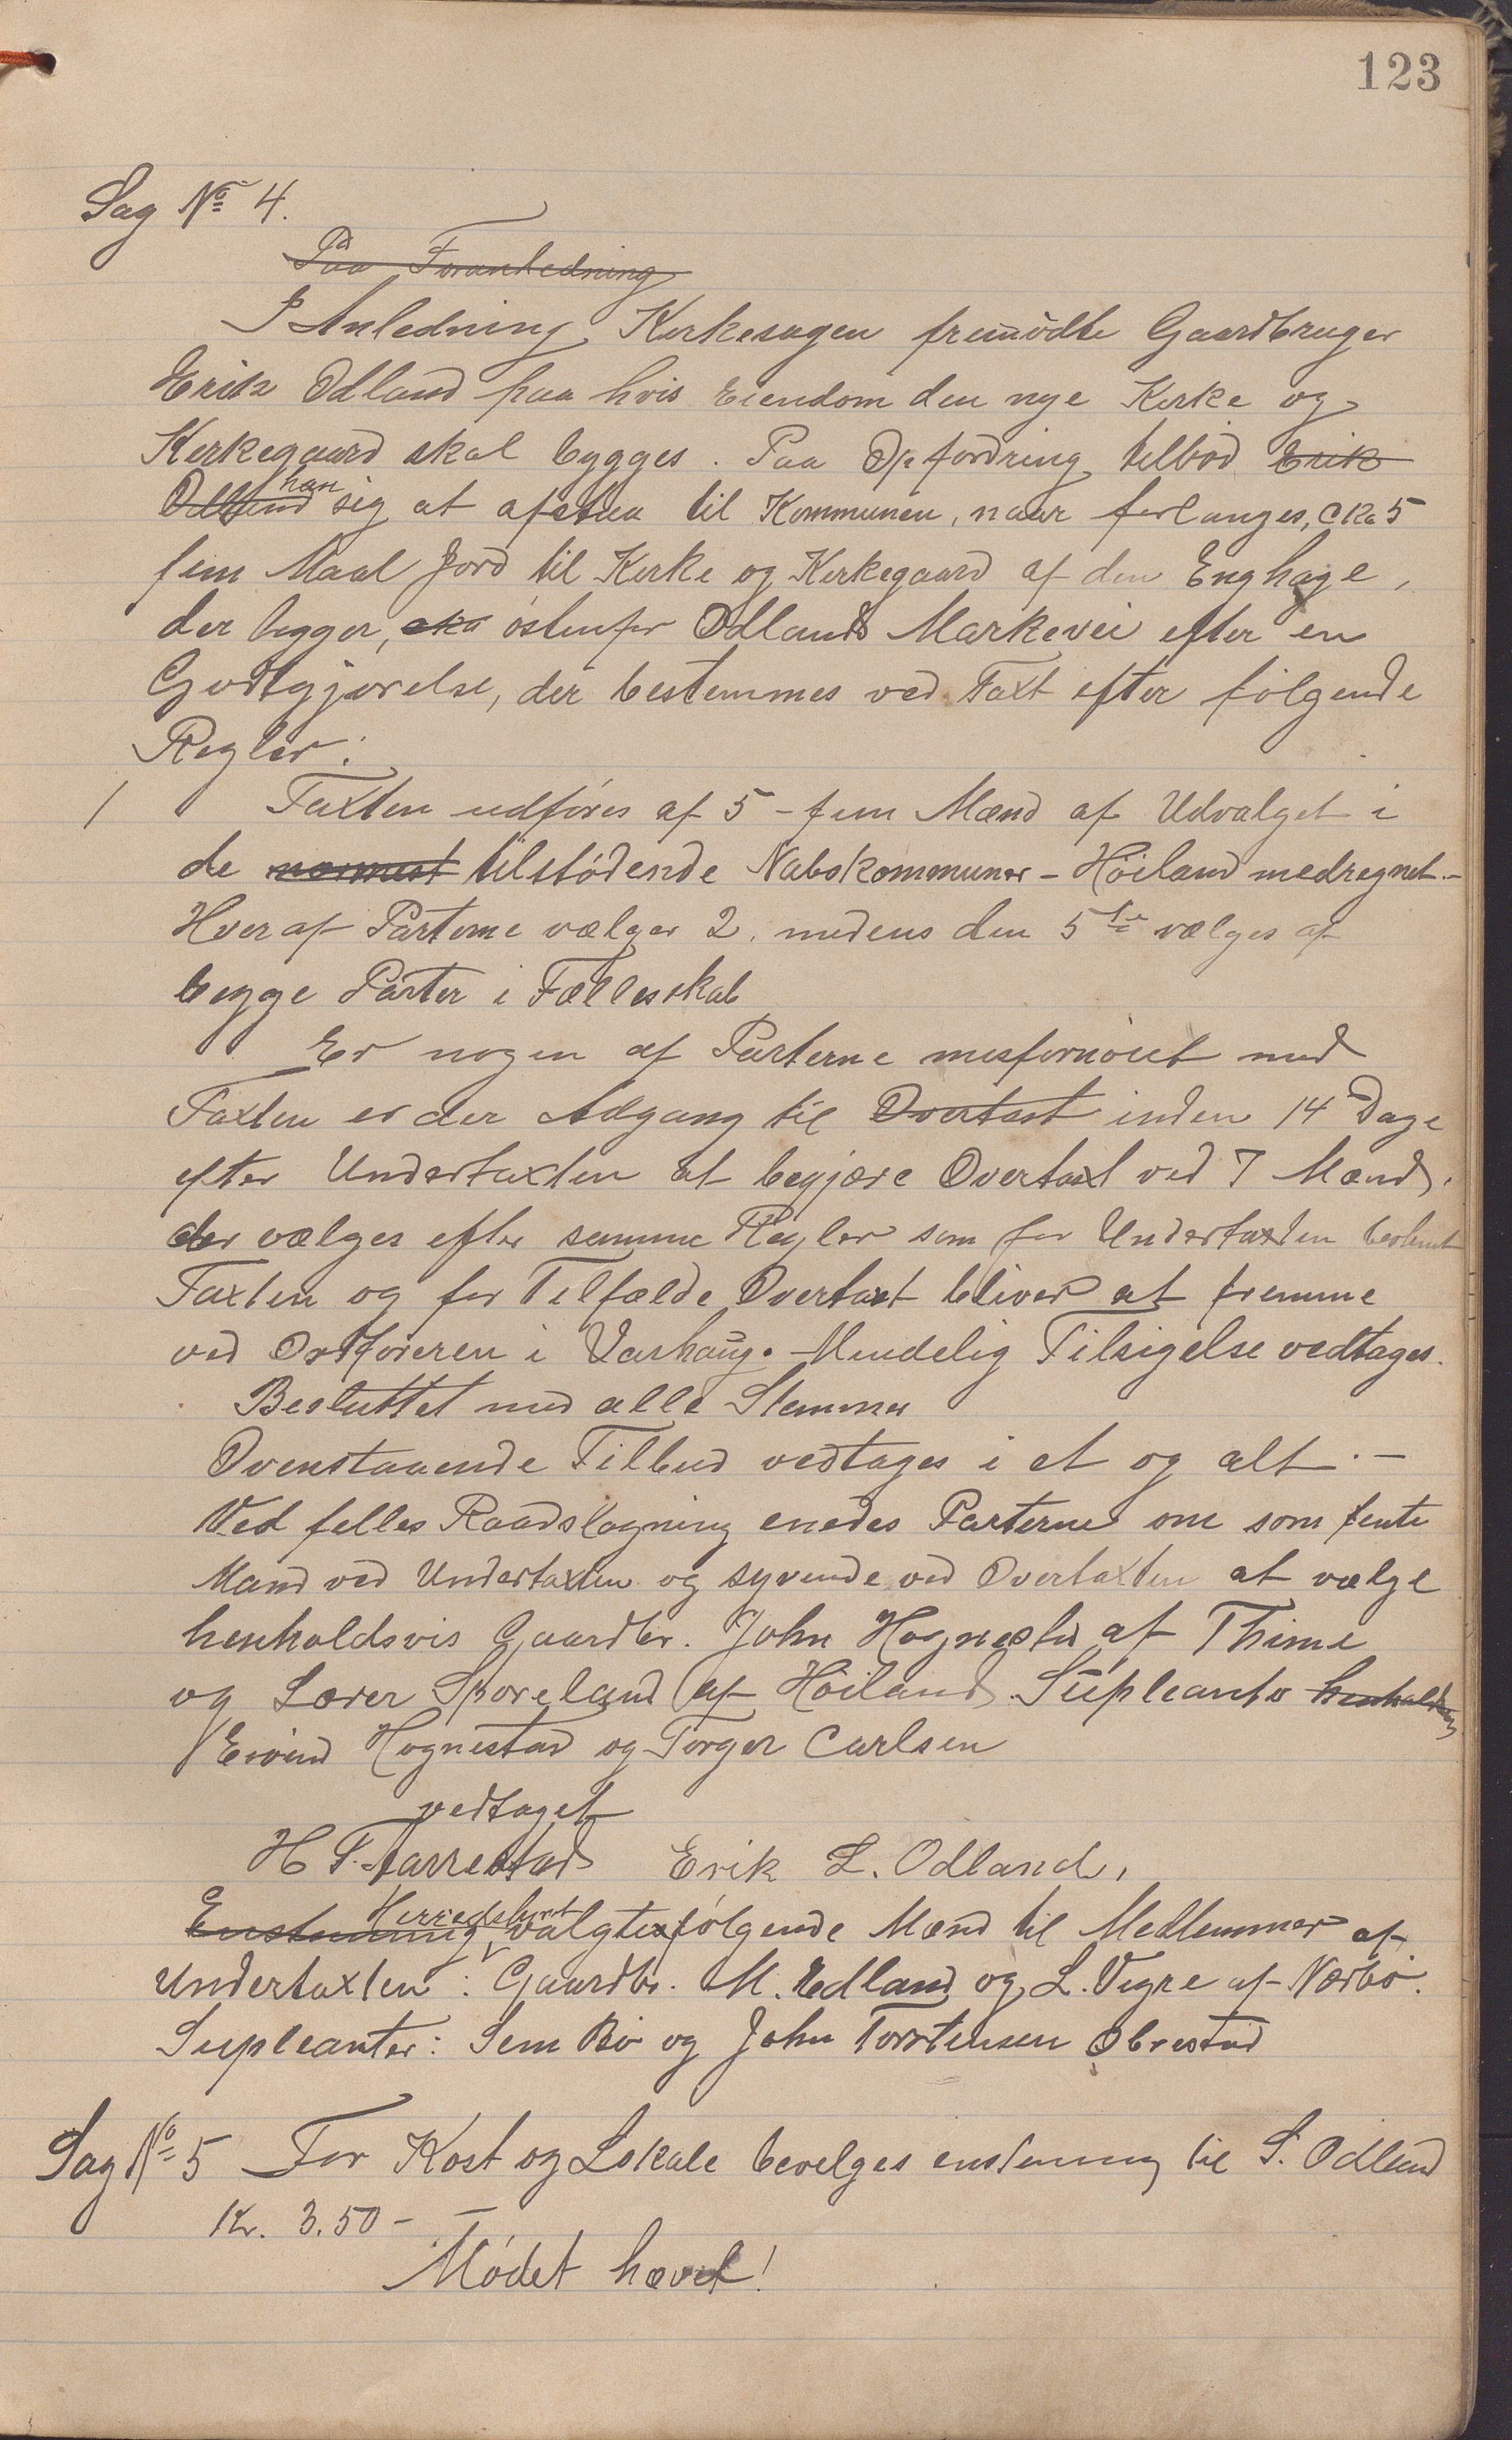 123
Sag No 4.
Paa Foranledning
I Anledning Kirkesagen fremmødte Gaardbruger
Erik Odland paa hvis Eiendom den nye Kirke og
Kirkegaard skal bygges. Paa Opfordring tilbød Erik
Odland han sig at afstaa til Kommunen, naar forlanges, cka 5
fem Maal Jord til Kirke og Kirkegaard af den Enghage,
der ligger, cka østenfor Odlands Markevei efter en
Godtgjørelse, der bestemmes ved Taxt efter følgende
Regler:
1 Taxten udføres af 5 - fem Mænd af Udvalget i
de nærmest tilstødende Nabokommuner - Høiland medregnet. -
Hver af Parterne vælger 2, medens den 5te vælges af
begge Parter i Fællesskab
Er nogen af Parterne misfornøiet med
Taxten er der Adgang til Overtaxt inden 14 Dage
efter Undertaxten at begjære Overtaxt ved 7 Mænd,
der vælges efter samme Regler som for Undertaxten bestemt
Taxten og for Tilfælde Overtaxt bliver at fremme
ved Ordføreren i Varhaug. - Mundelig Tilsigelse vedtages.
Besluttet med alle Stemmer
Ovenstaaende Tilbud vedtages i et og alt. -
Ved felles Raadslagning enedes Parterne om som femte
Mand ved Undertaxten og syvende ved Overtaxten at vælge
henholdsvis Gaardbr. John Hognestad af Thime
og Lærer Skoreland af Høiland. Supleanter henholdsvis
Eivind Hognestad og Torger Carlsen
vedtaget
H S. Tarrestad Erik L. Odland,
Enstemmig Herredsbest valgtes følgende Mænd til Medlemmer af
Undertaxten: Gaardbr. M. Edland og L. Vigre af Nærbø.
Supleanter: Sem Bø og John Torstensen Obrestad
Sag No 5 For Kost og Lokale bevilges enstemmig til S. Odland
Kr. 3.50 - -
Mødet hævet!